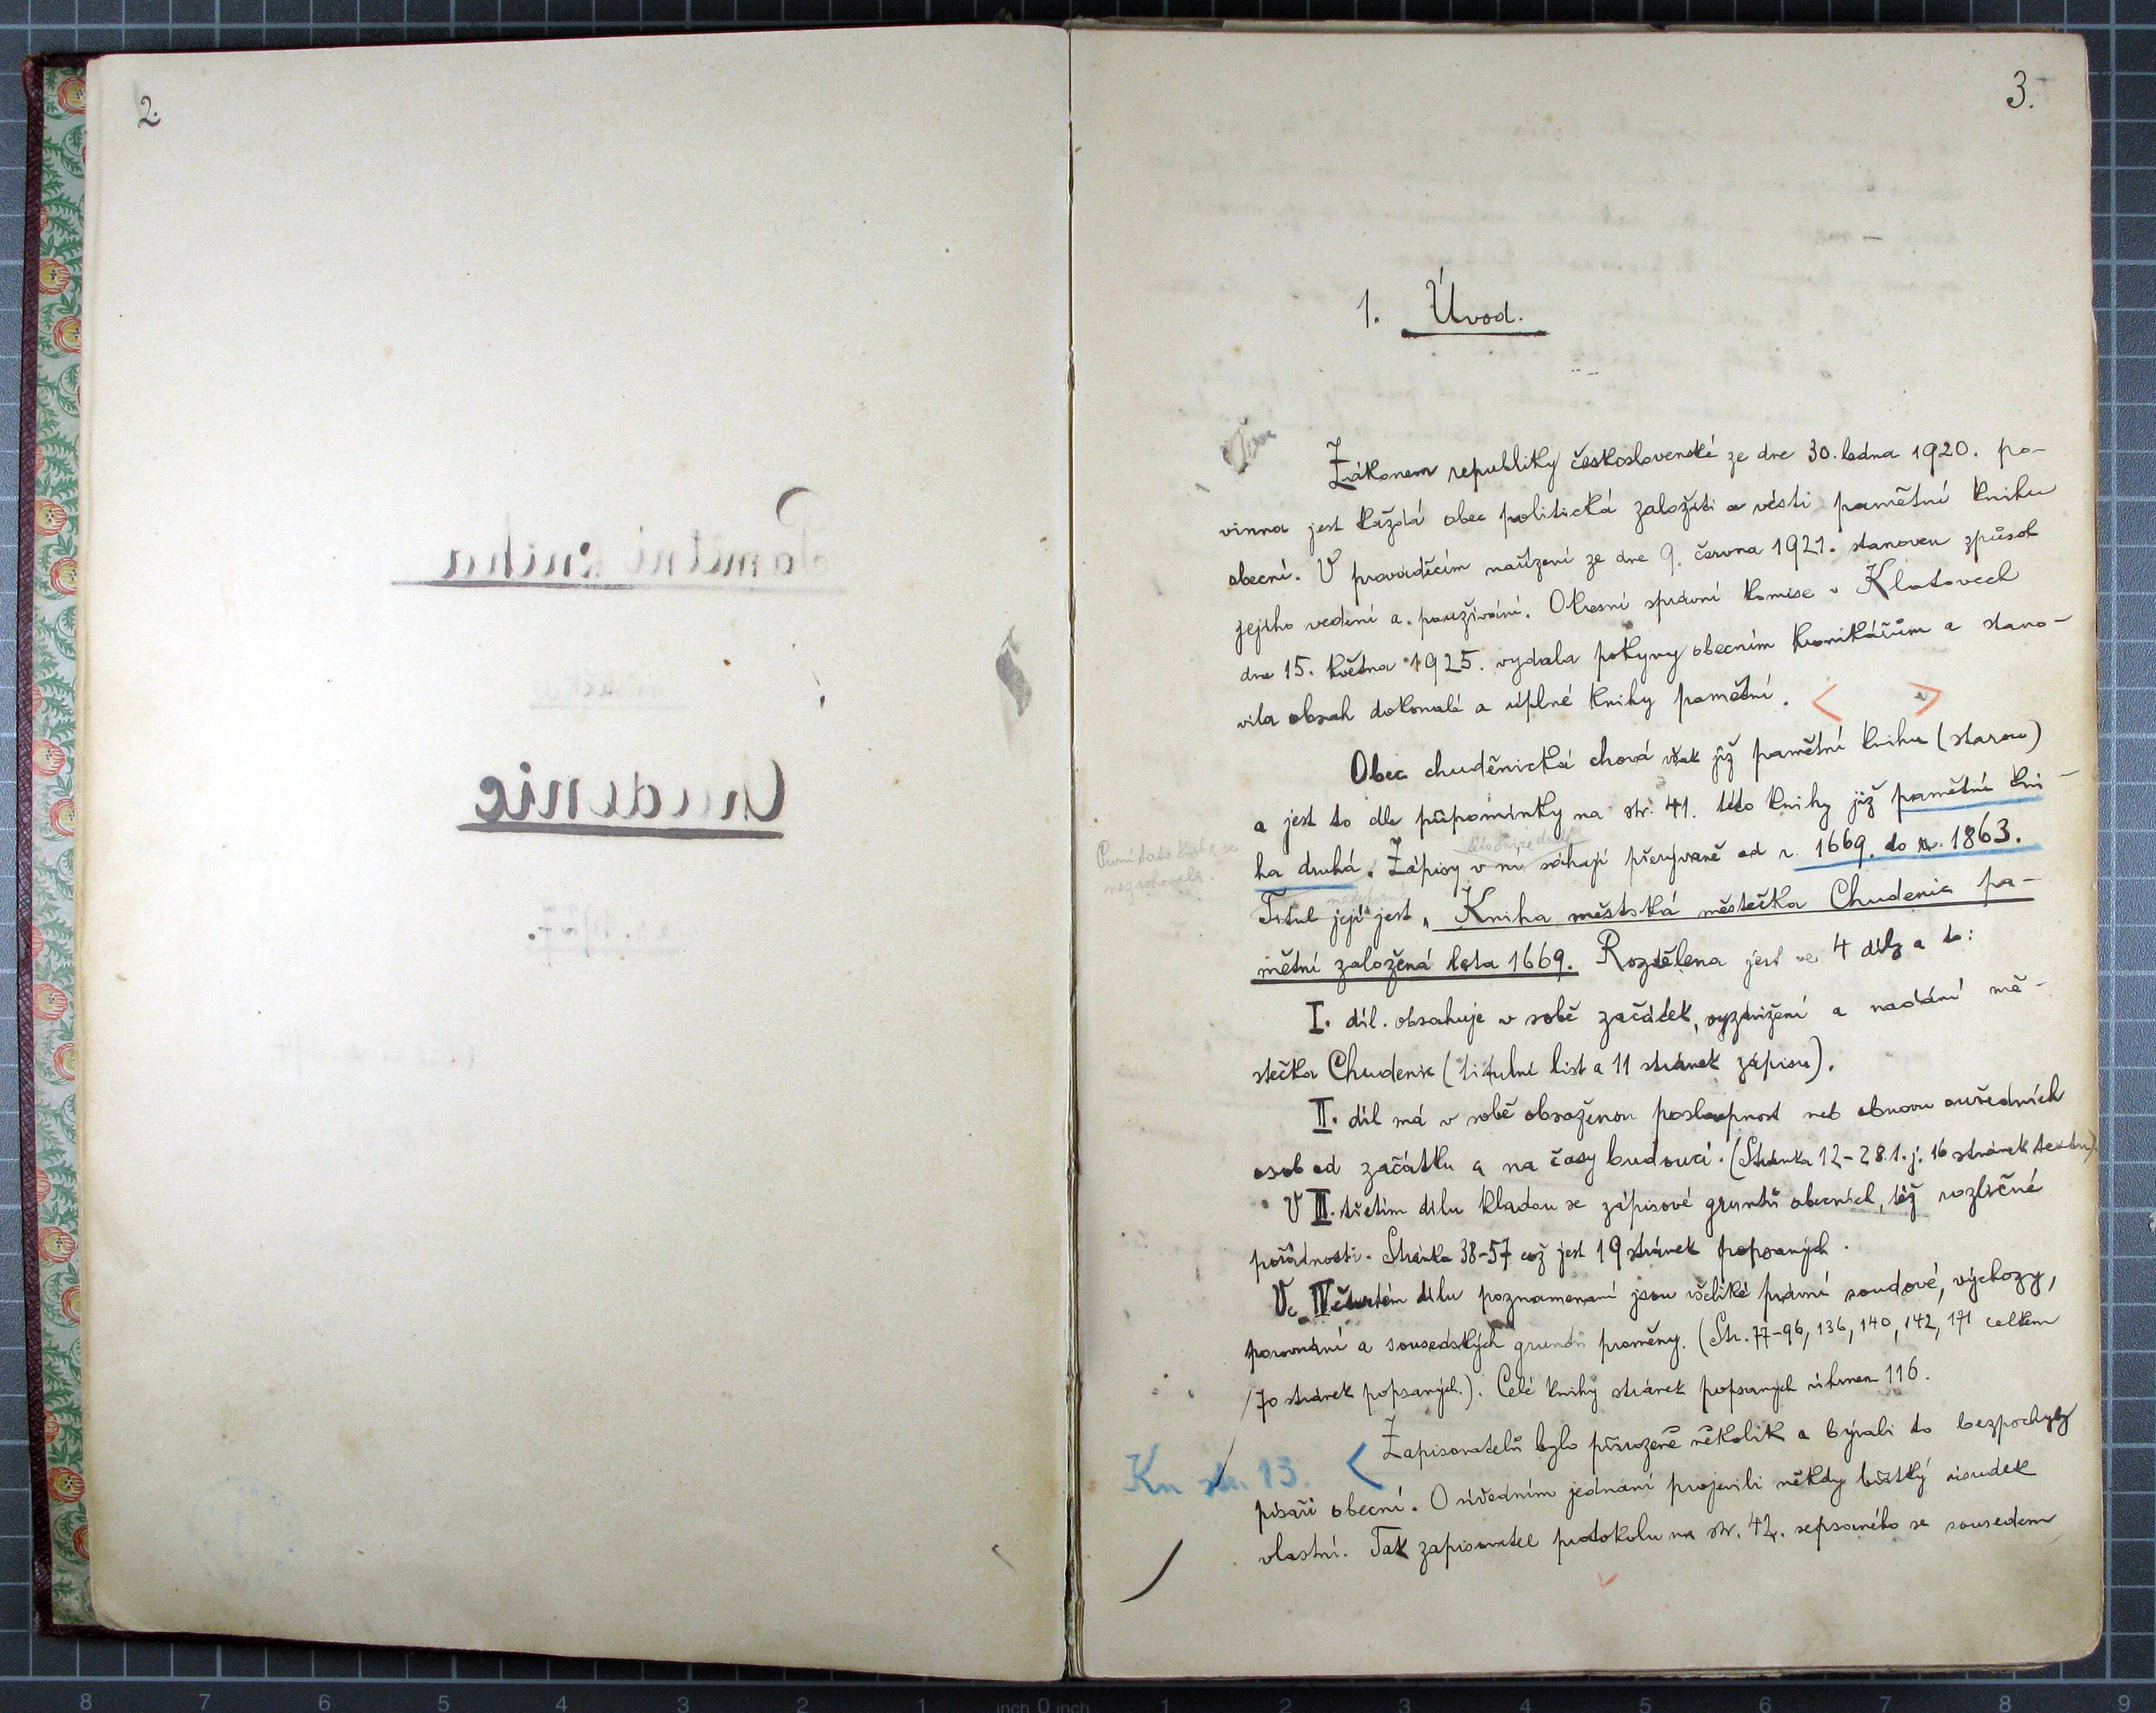 2.
3.
1. Úvod.
Zákonem republiky československé ze dne 30. ledna 1920. po-
vinna jest každá obec politická založiti a vésti pamětní knihu
obecní. V prováděcím nařízení ze dne 9. června 1921. stanoven způsob
jejího vedení a používání. Okresní správní komise v Klatovech
dne 15. května 1925. vydala pokyny obecním kronikářům a stano-
vila obsah dokonalé a úplné knihy pamětní.
Obec chuděnická chová však již pamětní knihu (starou)
a jest to dle připomínky na str. 41. této knihy již pamětní kni-
ha druhá. Zápisy v ní sáhají přerývaně od r. 1669. do r. 1863.
První tato kniha se
nezachovala.
Titul její jest „Kniha městská městečka Chudenic pa-
mětní založená leta 1669. Rozdělena jest ve 4 díly a to:
I. díl. obsahuje v sobě začátek, vyzdvižení a nadání mě-
stečka Chudenic (titulní list a 11 stránek zápisu).
II. díl má v sobě obsaženou posloupnost neb obnovu ouředních
osob od začátku a na časy budoucí. (Stránka 12-28. t. j. 16 stránek textu).
V III. třetím dílu kladou se zápisové gruntů obecních, též rozličné
pořádnosti. Stránka 38-57 což jest 19 stránek popsaných.
Ve IV čtvrtém dílu poznamenaní jsou všeliké právní soudové, výchozy,
porovnání a sousedských gruntů proměny. (Str. 77-96, 136, 140, 142, 171 celkem
70 stránek popsaných.). Celé knihy stránek popsaných úhrnem 116.
Kn str. 13.
Zapisovatelů bylo přirozeně několik a bývali to bezpochyby
písaři obecní. O úředním jednání projevili někdy břitký úsudek
vlastní. Tak zapisovatel protokolu na str. 42. sepsaného se sousedem